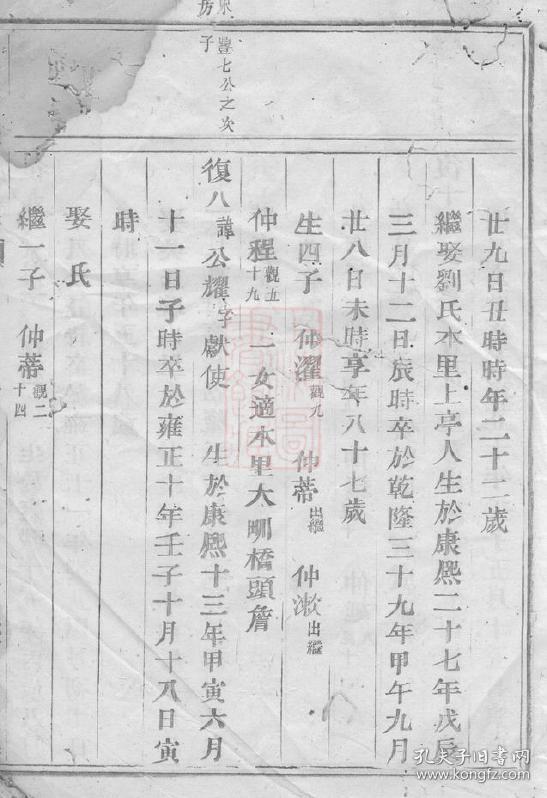 廿九日丑時時年二十二歲
繼娶劉氏本里上亭人生於康熙二十七年戊辰
三月十二日辰時卒於乾隆三十九年甲午九月
廿八日未時享年八十七歲
生四子 仲濯觀九 仲蒂出繼 仲漱出繼
仲程觀五十九 一女適本里大㘭橋頭詹
豐七公之次
子
房
復八諱公耀字獻使 生於康熙十三年甲寅六月
十一日子時卒於雍正十年壬子十月十八日寅
時
娶 氏
繼一子 仲蒂觀二十四
孔夫子旧书网
book.kongfz.com